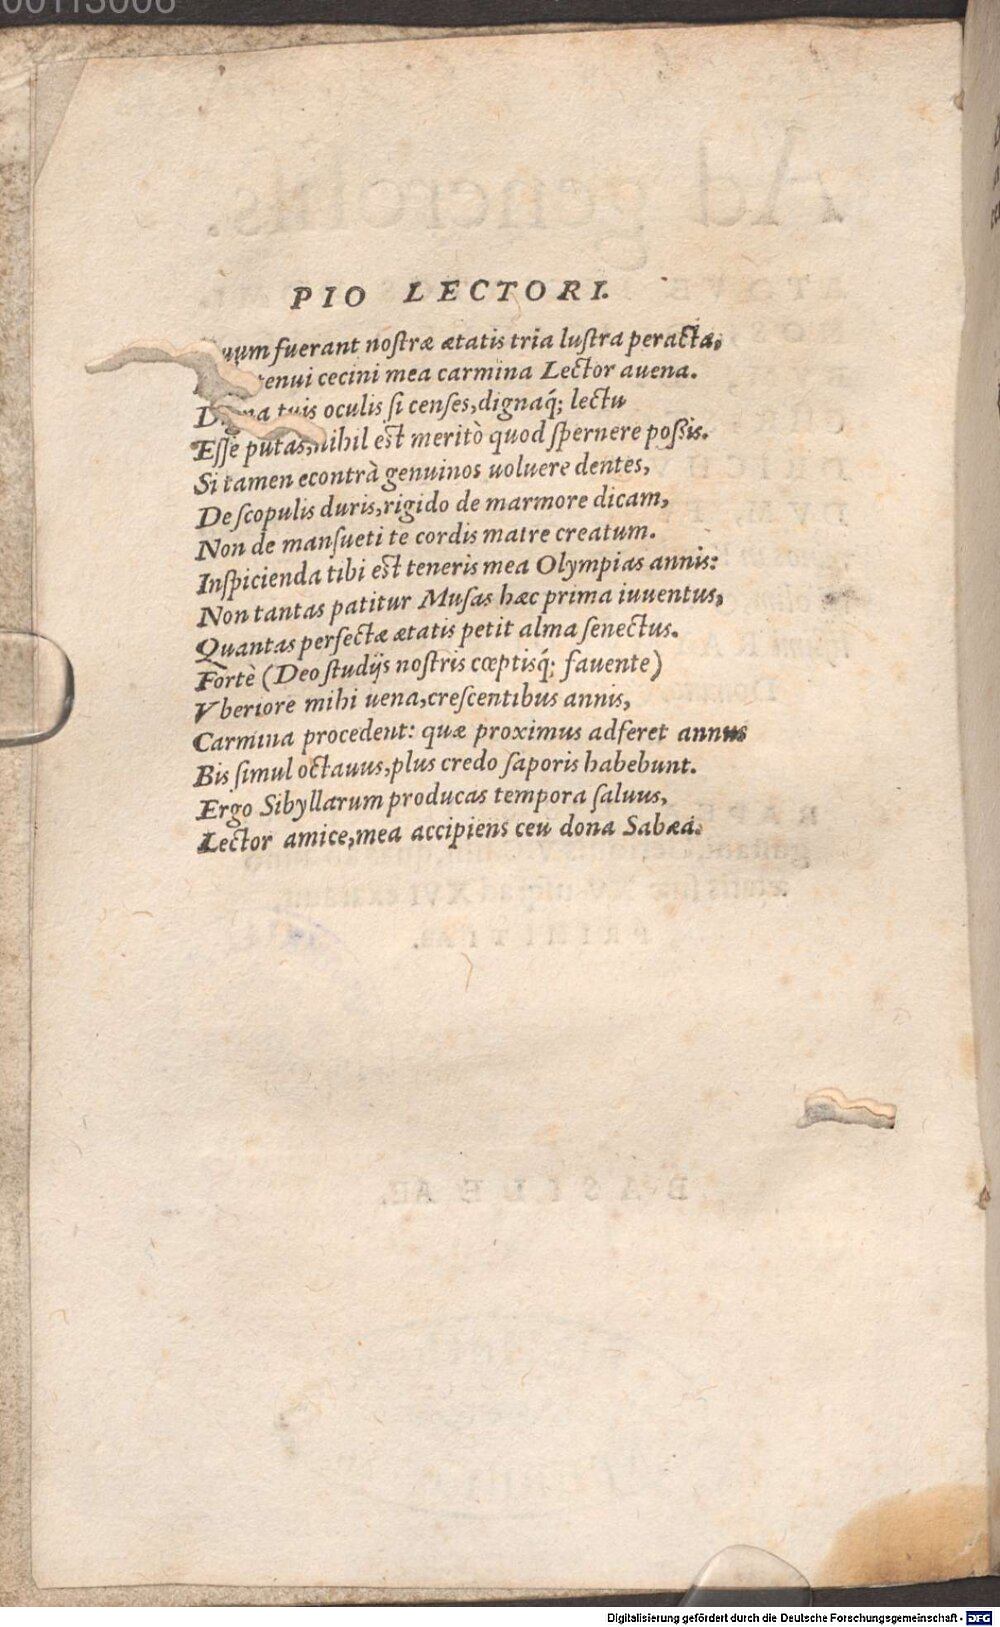 00113006
PIO LECTORI.
fuerant nostræ ætatis tria lustra peracta,
tenui cecini mea carmina Lector auena.
tuis oculis si censes, dignaq́; lectu
Esse putas, nihil est meritò quod spernere possis.
Si tamen econtrà genuinos uoluere dentes,
De scopulis duris, rigido de marmore dicam,
Non de mansueti te cordis matre creatum.
Inspicienda tibi est teneris mea Olympias annis:
Non tantas patitur Musas hæc prima iuuentus,
Quantas perfectæ ætatis petit alma senectus.
Fortè (Deo studijs nostris cœptisq́; fauente)
Vberiore mihi uena, crescentibus annis,
Carmina procedent: quæ proximus adferet annus
Bis simul octauus, plus credo saporis habebunt.
Ergo Sibyllarum producas tempora saluus,
Lector amice, mea accipiens ceu dona Sabæa.
Digitalisierung gefördert durch die Deutsche Forschungsgemeinschaft - DFG